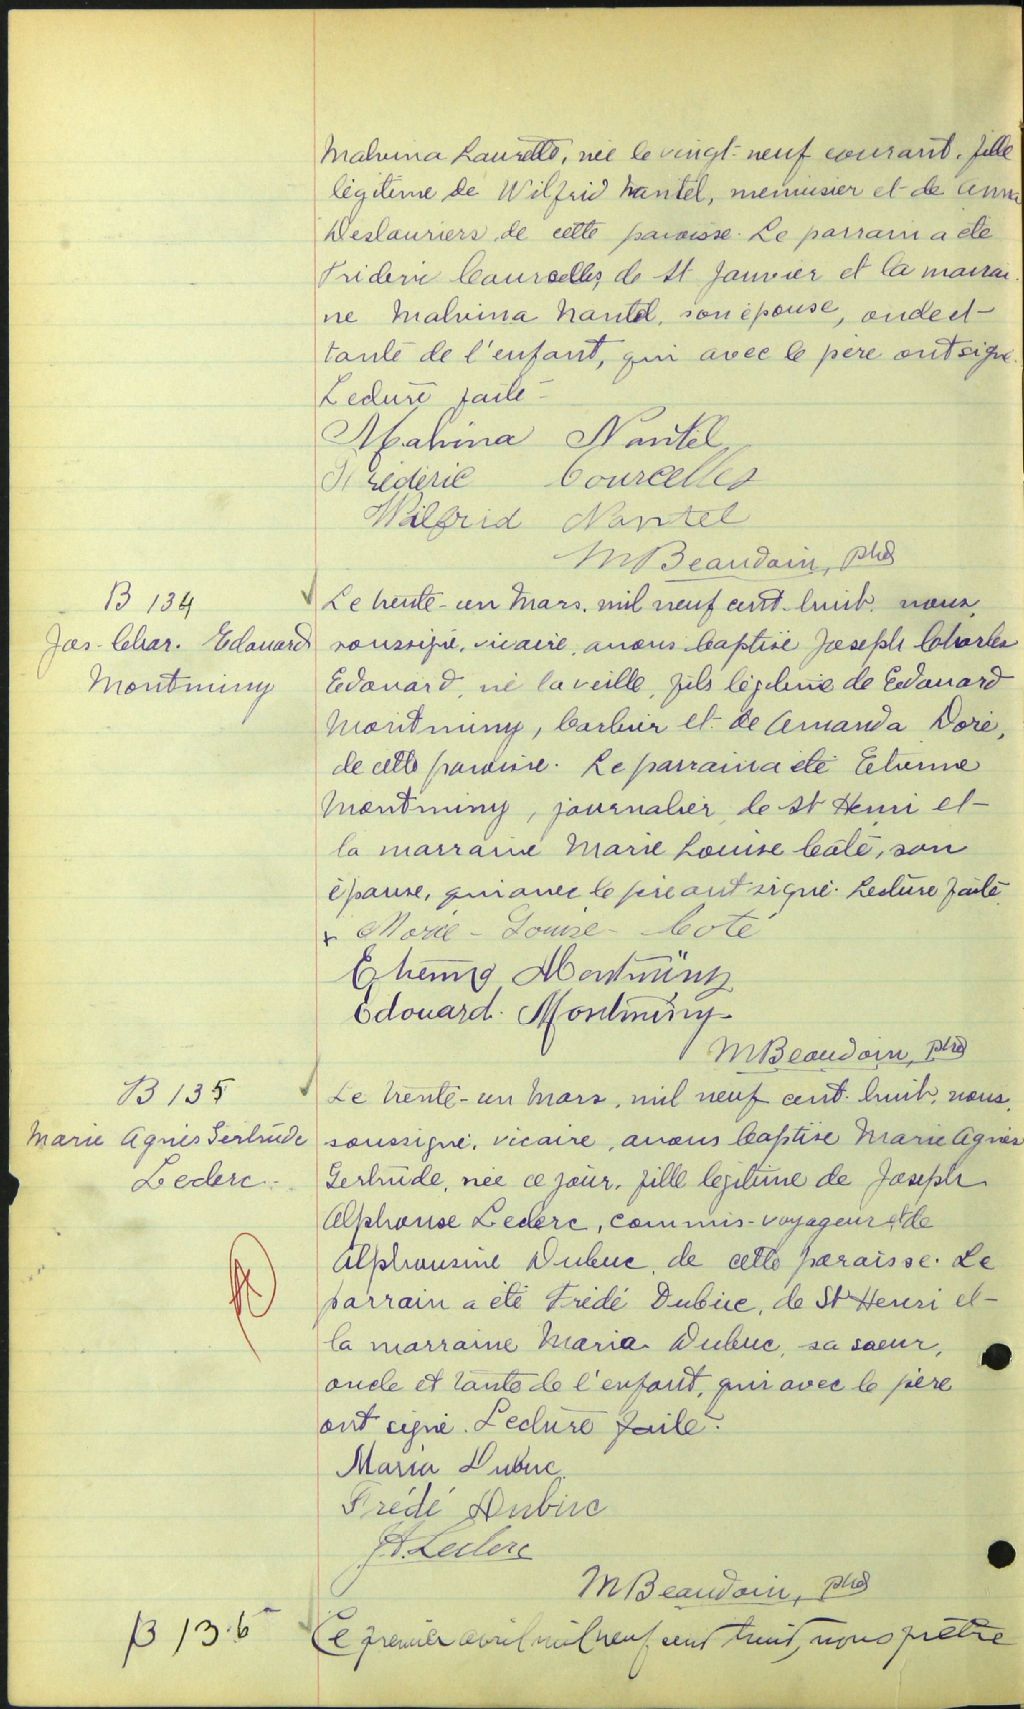 Malvina Laurette, née le vingt-neuf courant, fille
légitime de Wilfrid Nantel, menuisier et de Anna
Deslauriers de cette paroisse. Le parrain a été
Frideric Courcelles de St Janvier et la marrai-
ne Malvina Nantel, son épouse, oncle et
tante de l'enfant, qui avec le père ont signé.
Lecture faite
Malvina Nantel
Frédéric Courcelles
Wilfrid Nantel
M Beaudoin, ptre
B 134
Jos. Char. Edouard
Montminy
Le trente-un Mars, mil neuf cent-huit, nous
soussigné, vicaire, avons baptisé Joseph Charles
Edouard, né la veille, fils légitime de Edouard
Montminy, barbier et de Amanda Doré,
de cette paroisse. Le parrain a été Etienne
Montminy, journalier, de St Henri et
la marraine Marie Louise Côté, son
épouse, qui avec le père ont signé. Lecture faite
+ Marie-Louise Coté
Etienne Montminy
Edouard Montminy
M Beaudoin, ptre
B 135
Marie Agnès Gertrude
Leclerc
Le trente-un Mars, mil neuf cent-huit, nous,
soussigné, vicaire, avons baptisé Marie Agnès
Gertrude, née ce jour, fille légitime de Joseph
Alphonse Leclerc, commis-voyageur et de
Alphonsine Dubuc, de cette paroisse. Le
parrain a été Frédé Dubuc, de St Henri et
la marraine Maria Dubuc, sa soeur,
oncle et tante de l'enfant, qui avec le père
ont signé. Lecture faite.
Maria Dubuc
Frédé Dubuc
J.A. Leclerc
M Beaudoin, ptre
B 136
Ce premier avril mil neuf cent huit, nous prêtre